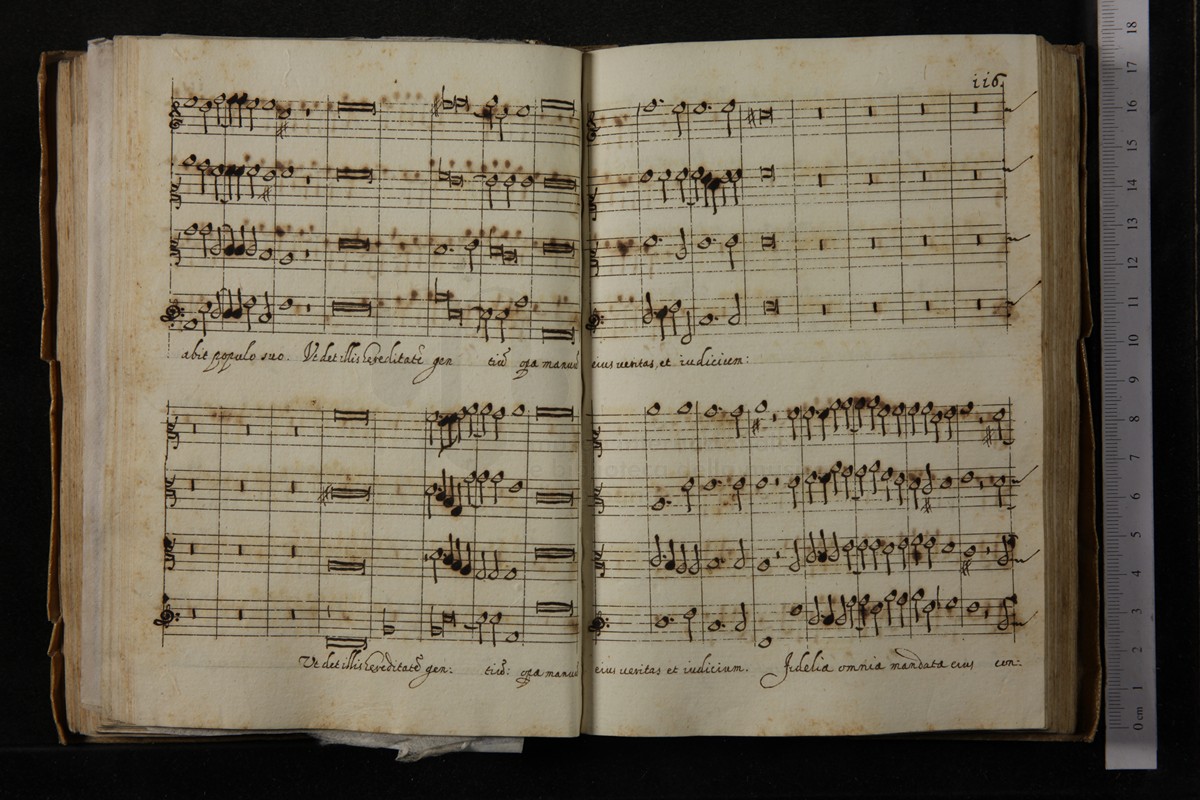 116
abit populo suo. Ut det illis hereditatē gen tiū opa manuū eius veritas, et iudicium:
Ut det illis hereditatē gen: tiū: opa manuū eius veritas et iudicium. Fidelia omnia mandata eius con:
0 cm 1 2 3 4 5 6 7 8 9 10 11 12 13 14 15 16 17 18